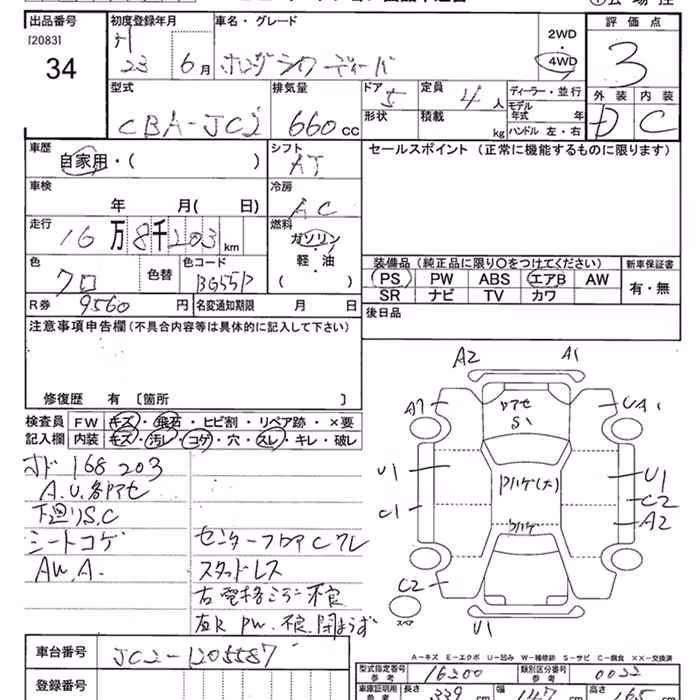 出品番号 初度登録年月 車名・グレード 評価点
[2083]
34
23 6月 ホンダ ライフ ディーバ 2WD・4WD 3
型式 排気量 ドア 定員 ディーラー・並行 外装 内装
CBA-JC2 660cc 5 4人 モデル年式 年 D C
形状 積載 kg ハンドル 左・右
車歴 シフト セールスポイント (正常に機能するものに限ります)
自家用・( ) AT
車検 冷房
年 月( 日) AC
走行 燃料
16万8千203km ガソリン・軽・油
( )
色 色替 色コード 装備品 (純正品に限り○をつけてください) 新車保証書
クロ BG55P PS PW ABS エアB AW 有・無
SR ナビ TV カワ
R券 9560円 名変通知期限 月 日 後日品
注意事項申告欄 (不具合内容等は具体的に記入して下さい)
修復歴 有 [箇所 ]
検査員 FW キズ・飛石・ヒビ割・リペア跡・×要
記入欄 内装 キズ・汚レ・コゲ・穴・スレ・キレ・破レ
168203
A.U.各アセ
下廻りS.C
シートコゲ
AW.A.
センターフロアCクレ
スタッドレス
右電格ミラー不良
PW.不良.閉まらず
A2 A1
A1 UA1
アセ
S1
U1 Pハゲ(大) U1
C1 C2
A2
ハゲ
C2
スペア
U1
A-キズ E-エクボ U-凹み W-補修跡 S-サビ C-腐食 XX-交換済
車台番号 JC2-1205587
登録番号
型式指定番号参考 16200 類別区分番号参考 0022
車庫証明用参考 長さ 339cm 幅 147 高さ